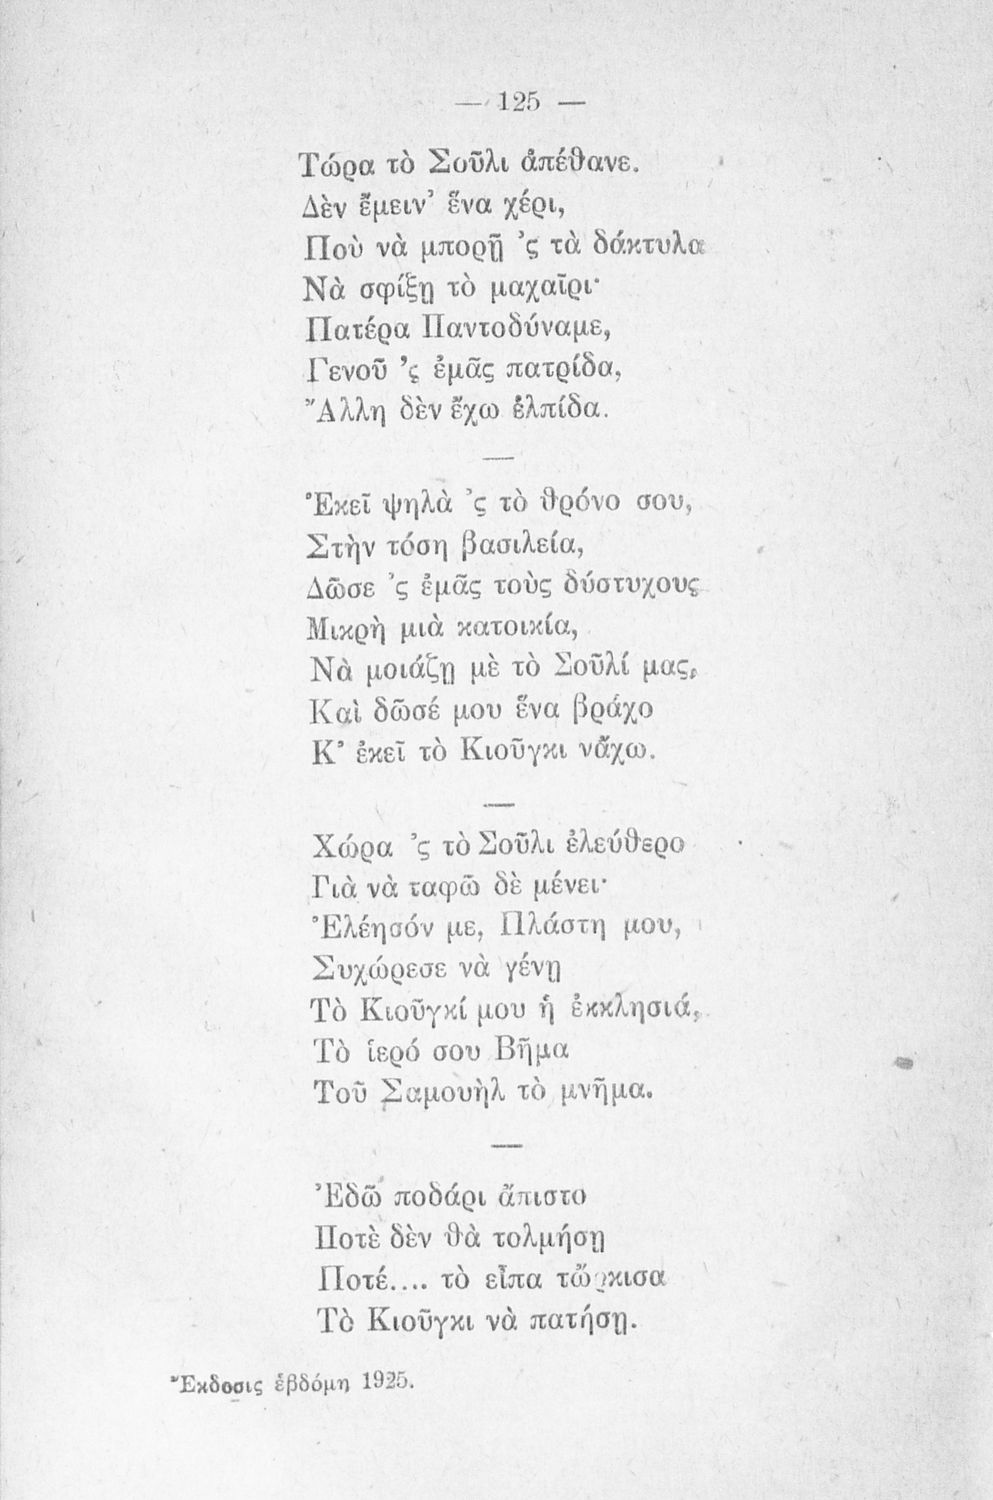 — 125 —
Τώρα τὸ Σοῦλι ἀπέθανε.
Δὲν ἔμειν’ ἕνα χέρι,
Ποὺ νὰ μπορῇ ’ς τὰ δάκτυλα
Νὰ σφίξῃ τὸ μαχαῖρι·
Πατέρα Παντοδύναμε,
Γενοῦ ’ς ἐμᾶς πατρίδα,
Ἄλλη δὲν ἔχω ἐλπίδα.
Ἐκεῖ ψηλὰ ’ς τὸ θρόνο σου,
Στὴν τόση βασιλεία,
Δῶσε ’ς ἐμᾶς τοὺς δύστυχους
Μικρὴ μιὰ κατοικία,
Νὰ μοιάζῃ μὲ τὸ Σοῦλί μας,
Καὶ δῶσέ μου ἕνα βράχο
Κ’ ἐκεῖ τὸ Κιοῦγκι νἄχω.
Χώρα ’ς τὸ Σοῦλι ἐλεύθερο
Γιὰ νὰ ταφῶ δὲ μένει·
Ἐλέησόν με, Πλάστη μου,
Συχώρεσε νὰ γένῃ
Τὸ Κιοῦγκί μου ἡ ἐκκλησιά,
Τὸ ἱερό σου Βῆμα
Τοῦ Σαμουὴλ τὸ μνῆμα.
Ἐδῶ ποδάρι ἄπιστο
Ποτὲ δὲν θὰ τολμήσῃ
Ποτέ.... τὸ εἶπα τὤρκισα
Τὸ Κιοῦγκι νὰ πατήσῃ.
Ἔκδοσις ἑβδόμη 1925.